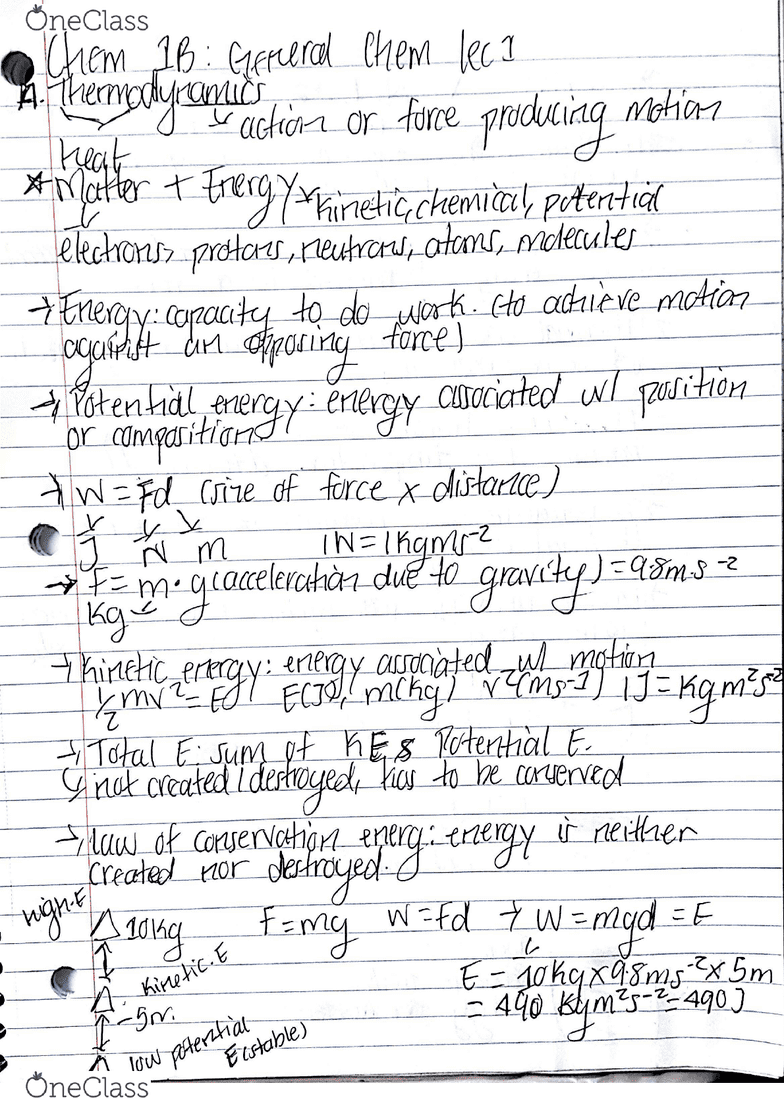 OneClass
Chem 1B: General Chem lec 1
A. Thermodynamics
↳ action or force producing motion
heat
* Matter + Energy → kinetic, chemical, potential
electrons, protons, neutrons, atoms, molecules
→ Energy: capacity to do work. (to achieve motion
against an opposing force)
→ Potential energy: energy associated w/ position
or composition
→ W = Fd (size of force x distance)
J N m 1N = 1kgms⁻²
→ F = m · g (acceleration due to gravity) = 9.8m.s⁻²
kg
→ Kinetic energy: energy associated w/ motion
1/2 mv² = E E(J), m(kg) v²(ms-1) 1J = kgm²s⁻²
→ Total E: sum of KE & Potential E.
↳ not created/destroyed, has to be conserved
→ law of conservation energ: energy is neither
created nor destroyed.
High.E
10kg F = mg W = Fd → W = mgd = E
Kinetic.E
E = 10kg x 9.8ms⁻² x 5m
-5m.
= 490 kgm²s⁻² = 490J
low potential
E(stable)
OneClass